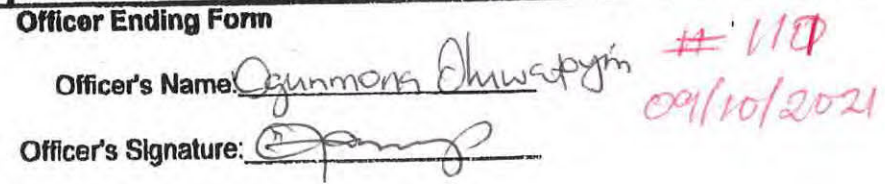 Officer Ending Form
Officer's Name: Ogunmona
# 110
09/10/2021
Officer's Signature: